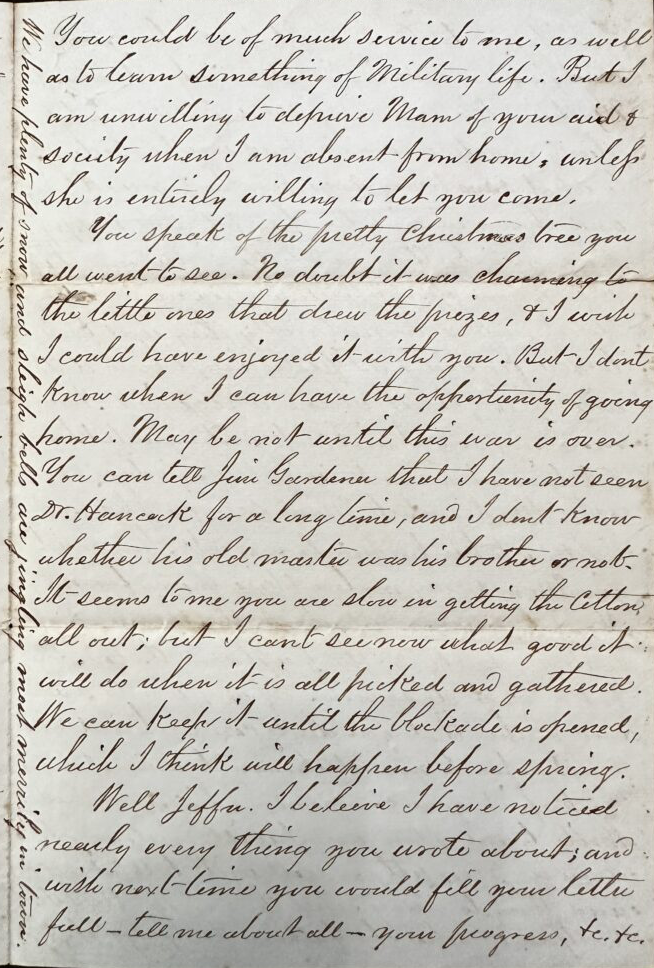 You could be of much service to me, as well
as to learn something of Military life. But I
am unwilling to deprive Mam of your aid &
society when I am absent from home, unless
she is entirely willing to let you come.
You speak of the pretty Christmas tree you
all went to see. No doubt it was charming to
the little ones that drew the prizes, & I wish
I could have enjoyed it with you. But I dont
know when I can have the opportunity of going
home. May be not until this war is over.
You can tell Jim Gardener that I have not seen
Dr. Hancock for a long time, and I dont know
whether his old master was his brother or not.
It seems to me you are slow in getting the Cotton
all out; but I cant see now what good it
will do when it is all picked and gathered.
We can keep it until the blockade is opened,
which I think will happen before spring.
Well Jeffn. I beleive I have noticed
nearly every thing you wrote about; and
wish next time you would fill your letter
full – tell me about all – your progress, &c. &c.
We have plenty of snow and sleigh bells are jingling most merrily in town.